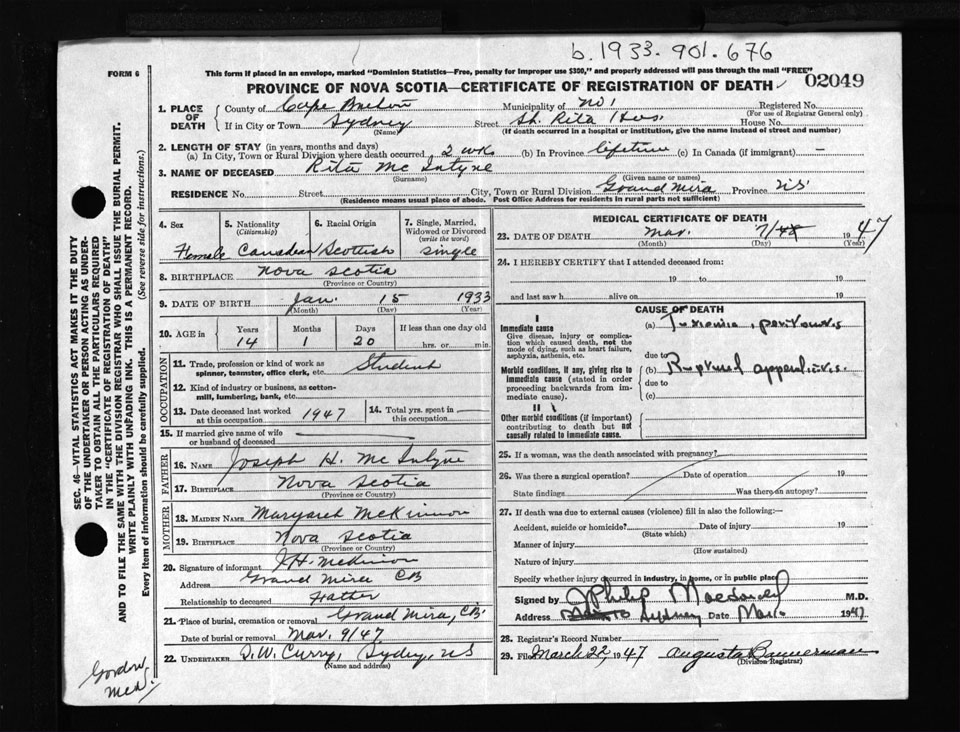 b. 1933. 901. 676
FORM 6
This form if placed in an envelope, marked "Dominion Statistics—Free, penalty for improper use $300," and properly addressed will pass through the mail "FREE"
PROVINCE OF NOVA SCOTIA—CERTIFICATE OF REGISTRATION OF DEATH 02049
1. PLACE OF DEATH County of Cape Breton Municipality of No 1 Registered No.
(For use of Registrar General only)
If in City or Town Sydney Street St. Rita Hos. House No.
(Name) (If death occurred in a hospital or institution, give the name instead of street and number)
2. LENGTH OF STAY (in years, months and days)
(a) In City, Town or Rural Division where death occurred 2 wks (b) In Province lifetime (c) In Canada (if immigrant) —
3. NAME OF DECEASED Rita Mc Intyre
(Surname) (Given name or names)
RESIDENCE No. Street City, Town or Rural Division Grand Mira Province NS
(Residence means usual place of abode. Post Office Address for residents in rural parts not sufficient)
4. Sex 5. Nationality (Citizenship) 6. Racial Origin 7. Single, Married, Widowed or Divorced (write the word)
Female Canadian Scottish Single
8. BIRTHPLACE Nova Scotia
(Province or Country)
9. DATE OF BIRTH Jan. 15 1933
(Month) (Day) (Year)
10. AGE in Years Months Days If less than one day old
14 1 20 hrs. or min.
OCCUPATION
11. Trade, profession or kind of work as spinner, teamster, office clerk, etc. Student
12. Kind of industry or business, as cotton-mill, lumbering, bank, etc.
13. Date deceased last worked at this occupation 1947 14. Total yrs. spent in this occupation
15. If married give name of wife or husband of deceased
FATHER
16. NAME Joseph H. Mc Intyre
17. BIRTHPLACE Nova Scotia
(Province or Country)
MOTHER
18. MAIDEN NAME Margaret McKinnon
19. BIRTHPLACE Nova Scotia
(Province or Country)
20. Signature of informant J.H.
Address Grand Mira CB
Relationship to deceased Father
21. Place of burial, cremation or removal Grand Mira, CB.
Date of burial or removal Mar. 9/47
22. UNDERTAKER D.W. Curry, Sydney, NS
(Name and address)
MEDICAL CERTIFICATE OF DEATH
23. DATE OF DEATH Mar. 7/ 1947
(Month) (Day) (Year)
24. I HEREBY CERTIFY that I attended deceased from:
19 to 19
and last saw h alive on 19
CAUSE OF DEATH
I
Immediate cause (a) Toxemia, peritonitis
Give disease, injury or complication which caused death, not the mode of dying, such as heart failure, asphyxia, asthenia, etc.
due to
Morbid conditions, if any, giving rise to immediate cause (stated in order proceeding backwards from immediate cause). (b) Ruptured appendicitis.
due to
(c)
II
Other morbid conditions (if important) contributing to death but not causally related to immediate cause.
25. If a woman, was the death associated with pregnancy?
26. Was there a surgical operation? Date of operation 19
State findings Was there an autopsy?
27. If death was due to external causes (violence) fill in also the following:—
Accident, suicide or homicide? Date of injury 19
(State which)
Manner of injury
(How sustained)
Nature of injury
Specify whether injury occurred in industry, in home, or in public place
Signed by J Philip Macdonald M.D.
Address Sydney Date Mar. 1947
28. Registrar's Record Number
29. Filed March 22 1947 Augusta Bannerman
(Division Registrar)
SEC. 46—VITAL STATISTICS ACT MAKES IT THE DUTY
OF THE UNDERTAKER OR PERSON ACTING AS UNDER-
TAKER TO OBTAIN ALL THE PARTICULARS REQUIRED
IN THE "CERTIFICATE OF REGISTRATION OF DEATH"
AND TO FILE THE SAME WITH THE DIVISION REGISTRAR WHO SHALL ISSUE THE BURIAL PERMIT.
WRITE PLAINLY WITH UNFADING INK. THIS IS A PERMANENT RECORD.
Every item of information should be carefully supplied. (See reverse side for instructions.)